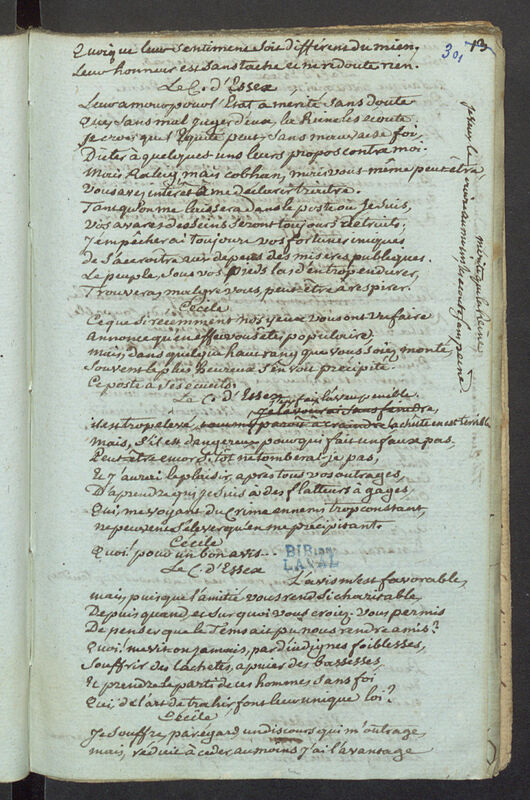 30, 13
Quoique leur sentiment soit différent du mien,
Leur honneur est sans tache et ne redoute rien.
Le C. d'Essex
Leur amour pour l'Etat a mérité sans doute
Que sans mal juger d'eux, la Reine les écoute
Je crois que l'Equité peut, sans mauvaise foi,
Dicter à quelques-uns leurs propos contre moi.
Mais Raleig, mais Cobhan, mais vous-même peut être
Vous avez intérêt à me déclarer traitre.
Tant qu'on me laissera dans le poste où je suis,
Vos avares desseins seront toujours détruits;
J'empêcherai toujours vos fortunes iniques
de s'accroitre aux dépens des misères publiques.
Le peuple, sous vos pieds las d'être opprimé,
Trouvera, malgré vous, peut être à respirer.
Cécile
Ce que si récemment nos yeux vous ont vu faire
Annonce qu'en effet vous êtes populaire,
mais, dans quelque haut rang que vous soiez monté,
Souvent le plus heureux s'en voit précipité.
Ce poste a ses écueils.
Le C. d'Essex
J'en fais l'aveu pénible.
Je l'avouerai sans feindre,
il est trop élevé, la chûte en est terrible
Mais, s'il est dangereux pour qui fait un faux pas,
Peut être encor si tot ne tomberai-je pas,
Et j'aurai le plaisir, après tous vos outrages,
D'apprendre qui je suis à des flatteurs à gages,
Qui me voyant du crime ennemi trop constant,
ne peuvent s'élever qu'en me précipitant.
Cécile
Quoi! pour un bon avis...
BIBL
LAVAL
Le C. d'Essex
L'avis m'est favorable,
mais, puisque l'amitié vous rend si charitable,
Depuis quand, et sur quoi vous croiez-vous permis
De penser que le tems ait pu nous rendre amis?
Quoi! m'a vit on jamais, par d'indignes foiblesses,
Souffrir des lachetés, apuier des bassesses,
Et prendre le parti de ces hommes sans foi
Qui de l'art de trahir font leur unique loi?
Cécile
Je souffre, par égard un discours qui m'outrage,
mais, réduit à céder au moins j'ai l'avantage